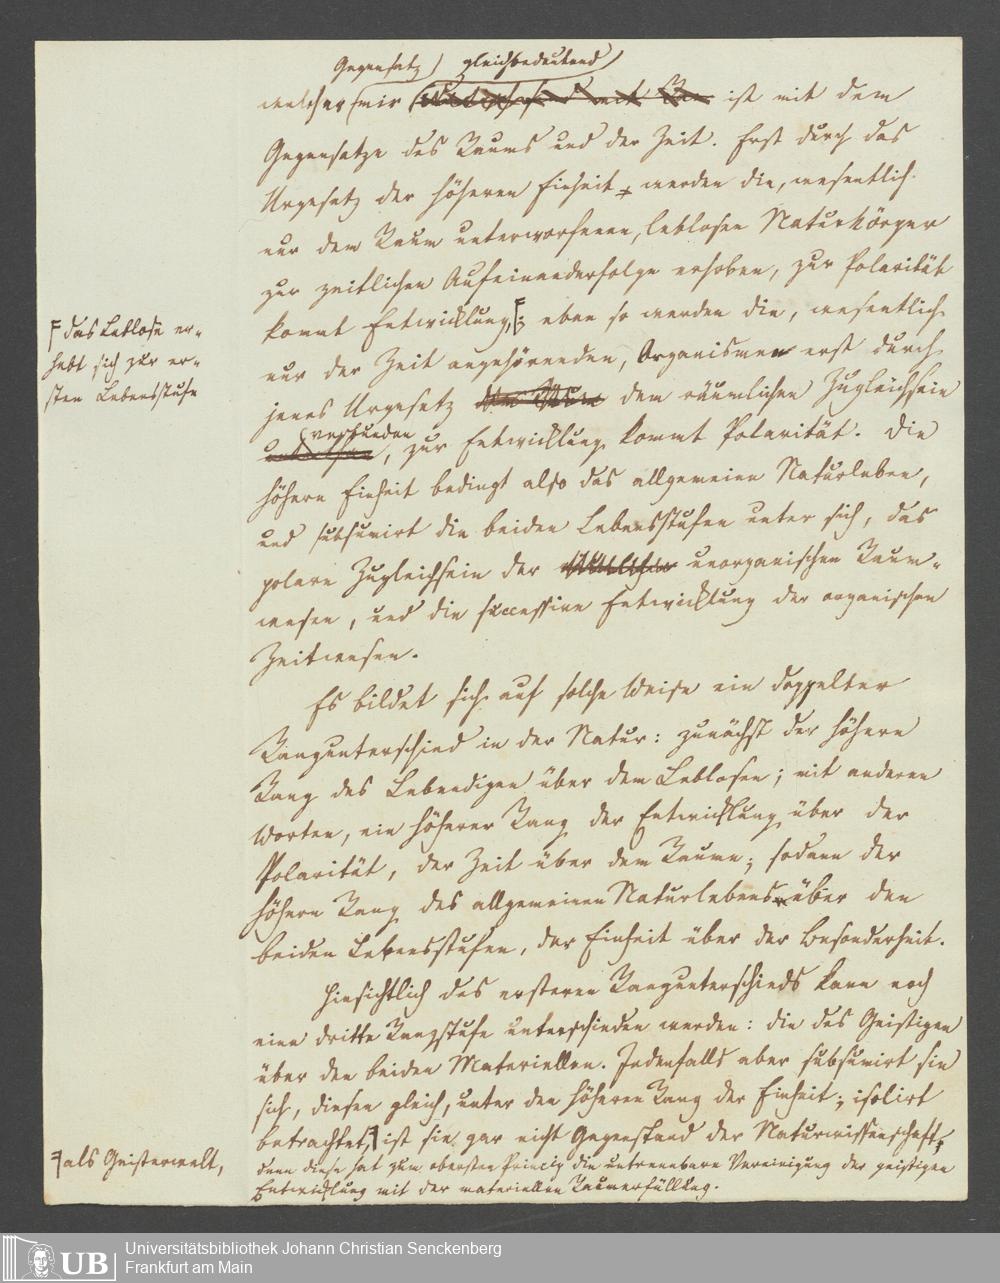 Gegensatz gleichbedeutend
welcher mir ist mit dem
Gegensatze des Raums und der Zeit. Erst durch das
Urgesetz der höheren Einheit werden die, wesentlich
nur dem Raum unterworfenen, leblosen Naturkörper
zur zeitlichen Aufeinanderfolge erhoben, zur Polarität
kommt Entwicklung,; eben so werden die, wesentlich
nur der Zeit angehörenden, Organismen erst durch
jenes Urgesetz dem räumlichen Zugleichsein
verbunden
, zur Entwicklung kommt Polarität. Die
höhere Einheit bedingt also das allgemeine Naturleben,
und subsumirt die beiden Lebensstufen unter sich, das
polare Zugleichsein der unorganischen Raum-
wesen, und die successive Entwicklung der organischen
Zeitwesen.
das Leblose er-
hebt sich zur er-
sten Lebensstufe
Es bildet sich auf solche Weise ein doppelter
Rangunterschied in der Natur: zunächst der höhere
Rang des Lebendigen über dem Leblosen; mit anderen
Worten, ein höherer Rang der Entwicklung über der
Polarität, der Zeit über dem Raume; sodann der
höhere Rang des allgemeinen Naturlebens über den
beiden Lebensstufen, der Einheit über der Besonderheit.
Hinsichtlich des ersteren Rangunterschieds kann noch
eine dritte Rangstufe unterschieden werden: die des Geistigen
über den beiden Materiellen. Jedenfalls aber subsumirt sie
sich, diesen gleich, unter den höheren Rang der Einheit; isolirt
betrachtet, ist sie gar nicht Gegenstand der Naturwissenschaft,
denn diese hat zum obersten Princip die untrennbare Vereinigung der geistigen
Entwicklung mit der materiellen Raumerfüllung.
als Geisterwelt,
UB
Universitätsbibliothek Johann Christian Senckenberg
Frankfurt am Main